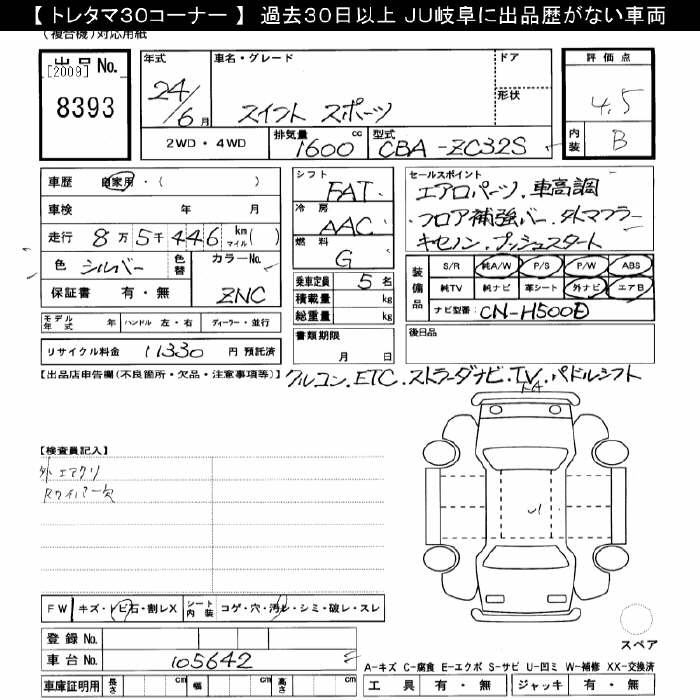 【 トレタマ30コーナー 】 過去30日以上 JU岐阜に出品歴がない車両
（複合機）対応用紙
出品 No.
[2009]
8393
年式
24/6月
車名・グレード
スイフト スポーツ
ドア
形状
2WD・4WD
排気量
1600 cc
型式
CBA-ZC32S
評価点
4.5
内装
B
車歴 自家用・（ ）
車検 年 月
走行 8万5千446 km マイル（ ）
色 シルバー 色替 カラーNo. ZNC
保証書 有・無
モデル年式 年 ハンドル 左・右 ディーラー・並行
リサイクル料金 11330 円 預託済
シフト
FAT
冷房
AAC
燃料
G
乗車定員 5 名
積載量 kg
総重量 kg
書類期限
月 日
セールスポイント
エアロパーツ、車高調
フロア補強バー、タナベマフラー
キセノン、プッシュスタート
装備品
S/R 純A/W P/S P/W ABS
純TV 純ナビ 革シート 外ナビ エアB
ナビ型番: CN-H500D
後日品
【出品店申告欄(不良箇所・欠品・注意事項等)】 クルコン、ETC、ストラーダナビ、TV、パドルシフト
【検査員記入】
外 エアクリ
Rワイパー欠
FW キズ・トビ石・割レX
シート内装 コゲ・穴・汚レ・シミ・破レ・スレ
登録 No.
車台 No. 105642
車庫証明用 長さ cm 幅 cm 高さ cm
スペア
A-キズ C-腐食 E-エクボ S-サビ U-凹ミ W-補修 XX-交換済
工具 有・無 ジャッキ 有・無